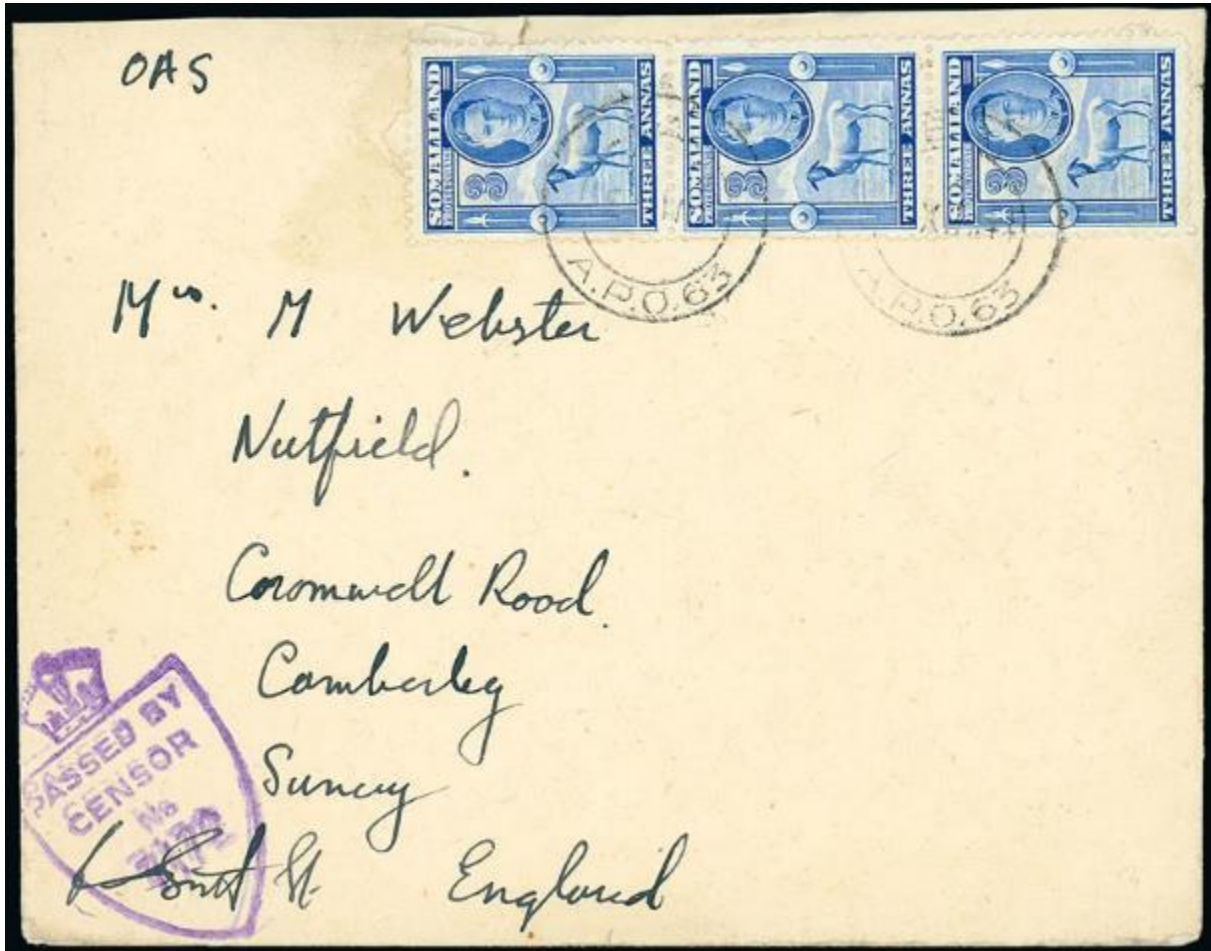 OAS
SOMALILAND
PROTECTORATE
3
THREE ANNAS
SOMALILAND
PROTECTORATE
3
THREE ANNAS
SOMALILAND
PROTECTORATE
3
THREE ANNAS
A.P.O.63
A.P.O.63
Mrs. M Webster
Nutfield.
Cromwell Road.
Camberley
Surrey
England
PASSED BY
CENSOR
No